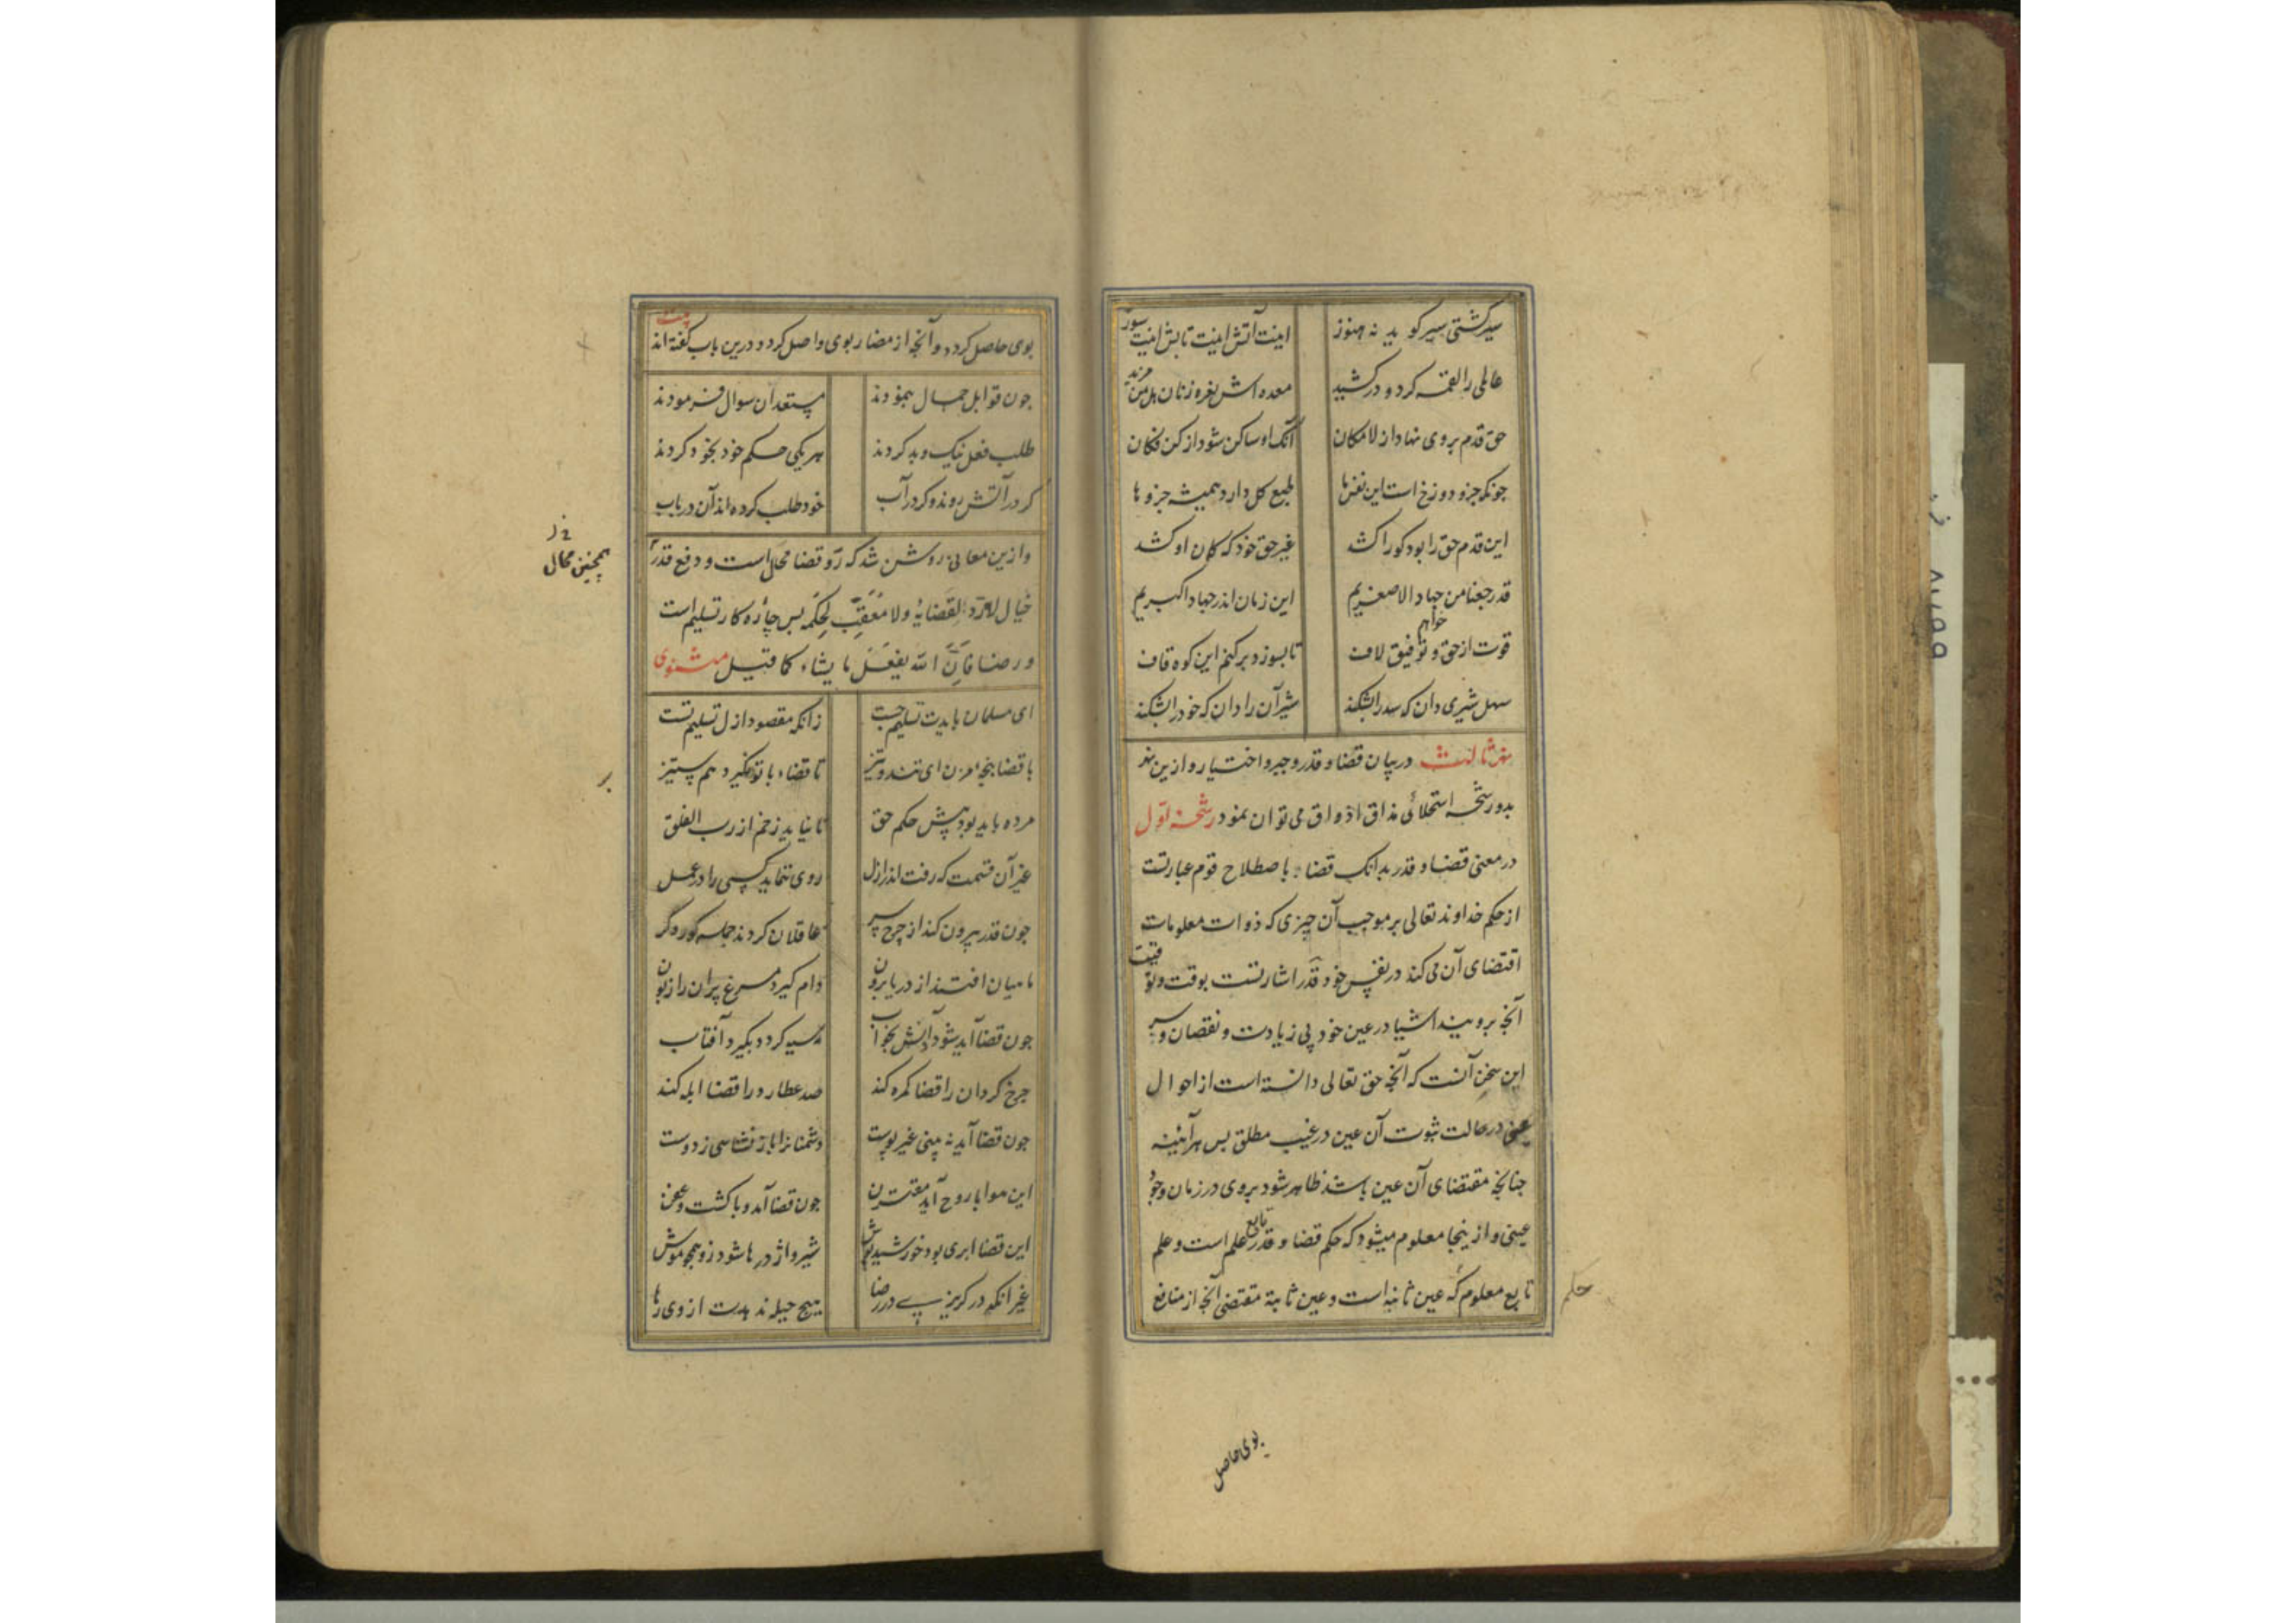 سیر گشتی سیر گوید نه هنوز اینت آتش اینت تابش اینت سوز
عالمی را لقمه کرد و درکشید معده اش نعره زنان هل من مزید
حق قدم بر وی نهاد از لامکان آنگه او ساکن شود از کن فکان
چونکه جزو دوزخ است این نفس ما طبع کل دارد همیشه جزوها
این قدم حق را بود کو را کشد غیر حق خود که کمان او کشد
قد رجعنا من جهاد الاصغریم این زمان اندر جهاد اکبریم
قوت از حق خواهم و توفیق لاف تا بسوزد برکنم این کوه قاف
سهل شیری دان که صدرا بشکند شیر آن را دان که خود را بشکند
نهر ثالث در بیان قضا و قدر و جبر و اختیار و ازین نهر
بدو رشحه استحلائی مذاق اذواق می توان نمود رشحه اول
در معنی قضا و قدر بدانک قضا باصطلاح قوم عبارتست
از حکم خداوند تعالی بر موجب آن چیزی که ذوات معلومات
اقتضای آن می کند در نفس خود و قدر اشارتست بوقت و توقیت
آنچه برویند اشیا در عین خود بی زیادت و نقصان و سر
این سخن آنست که آنچه حق تعالی دانسته است از احوال
عینی در حالت ثبوت آن عین در غیب مطلق پس هرآینه
چنانچه مقتضای آن عین باشد ظاهر شود بروی در زمان وجود
عینی و از ینجا معلوم میشود که حکم قضا و قدر تابع علم است و علم
تابع معلوم که عین ثابته است و عین ثابته مقتضی آنچه از منافع
حکم
بوی حاصل
بوی حاصل کردد و آنچه از مضار بوی واصل کردد و درین باب گفته اند بیت
چون قوابل جمال بنمودند مستعدان سوال فرمودند
طلب فعل نیک و بد کردند هر یکی حکم خود بخود کردند
کر در آتش روند و کر در آب خود طلب کرده اند آن دریاب
و ازین معانی روشن شد که رد قضا محال است و دفع قدر
همچنین محال
خیال لا مرد لقضایه ولا معقب لحکمه پس چاره کار تسلیم است
و رضا فان الله یفعل ما یشاء کما قیل مثنوی
ای مسلمان بایدت تسلیم جست زانکه مقصود ازل تسلیم تست
با قضا پنجه مزن ای تند و تیز تا قضا با تو نگیرد هم ستیز
مرده باید بود پیش حکم حق تا نیاید زخم از رب الفلق
غیر آن قسمت که رفت اندر ازل روی ننماید کسی را در عمل
چون قدر بیرون کند از چرخ سر عاقلان کردند جمله کور و کر
ماهیان افتند از دریا برون دام گیرد مرغ پران را زبون
چون قضا آید شود دانش بخواب مه سیه کردد بگیرد آفتاب
چرخ کردان را قضا گمره کند صد عطارد را قضا ابله کند
چون قضا آید نه بینی غیر پوست دشمنانرا باز نشناسی ز دوست
این هوا با روح آمد مقترن چون قضا آمد وبا گشت و عفن
این قضا ابری بود خورشید پوش شیر و اژدرها شود زو همچو موش
غیر آنکه در گریزی در رضا هیچ حیله ندهدت از وی رها